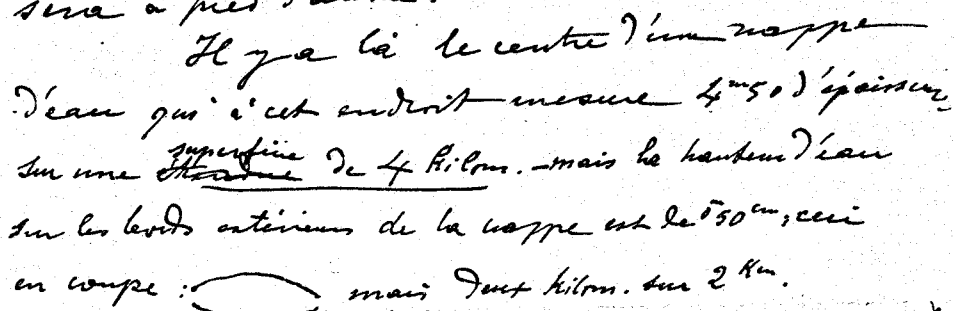 sera à pied d'œuvre.
Il y a là le centre d'une nappe
d'eau qui à cet endroit mesure 4m50 d'épaisseur
sur une superficie de 4 kilom. - mais la hauteur d'eau
sur les bords extérieurs de la nappe est de 50cm, ceci
en coupe : mais deux kilom. sur 2 Km.